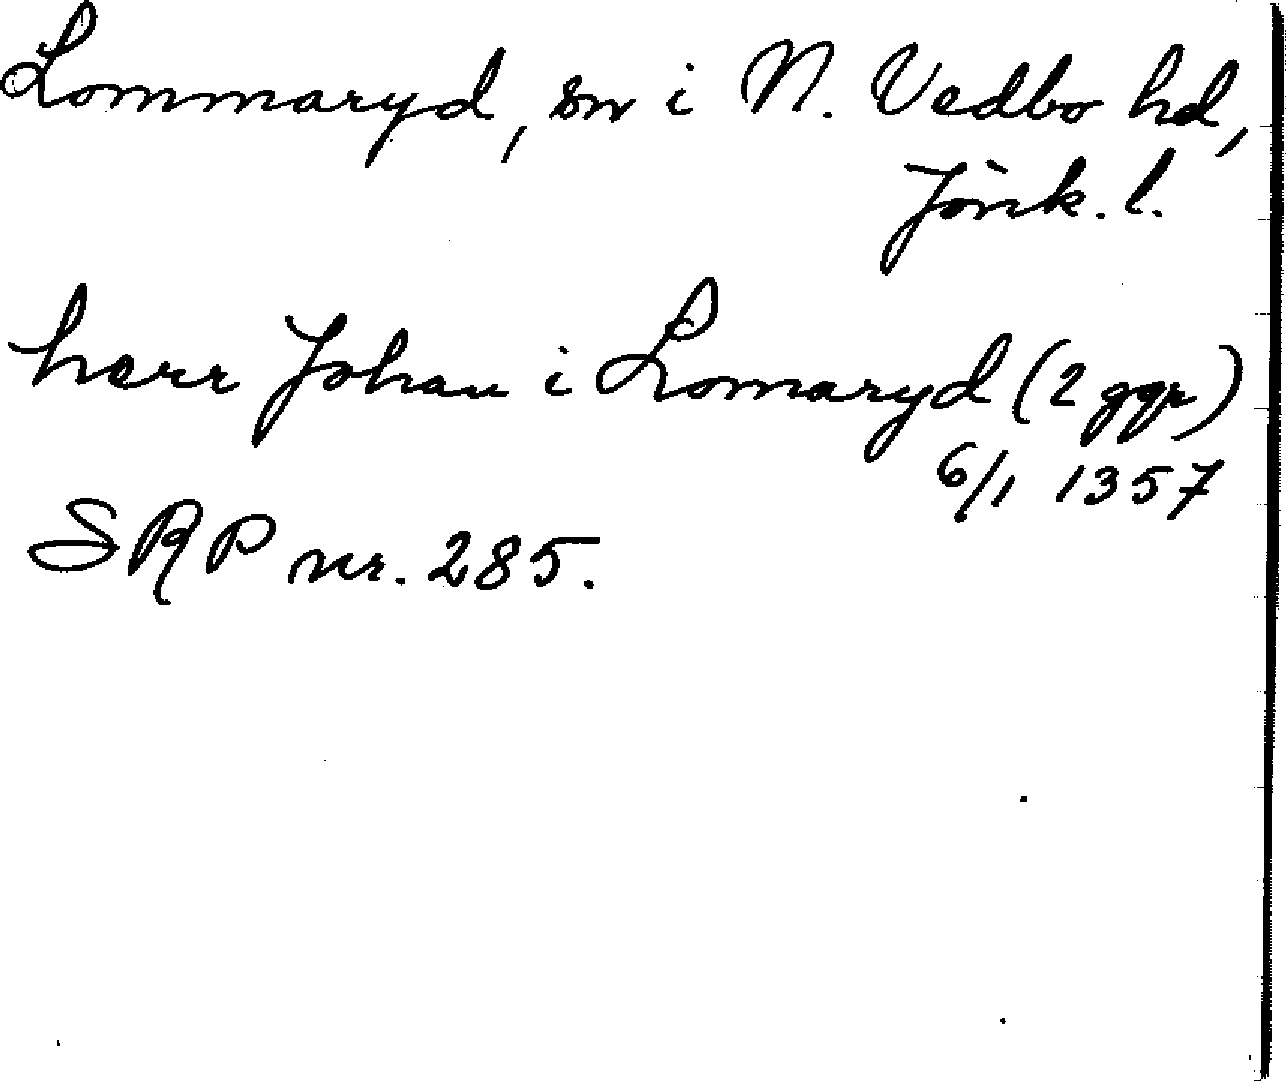 Lommaryd, sn i N. Vedbo hd,
Jönk. l.
herr Johan i Lomaryd (2 ggr)
6/1 1357
SRP nr. 285.